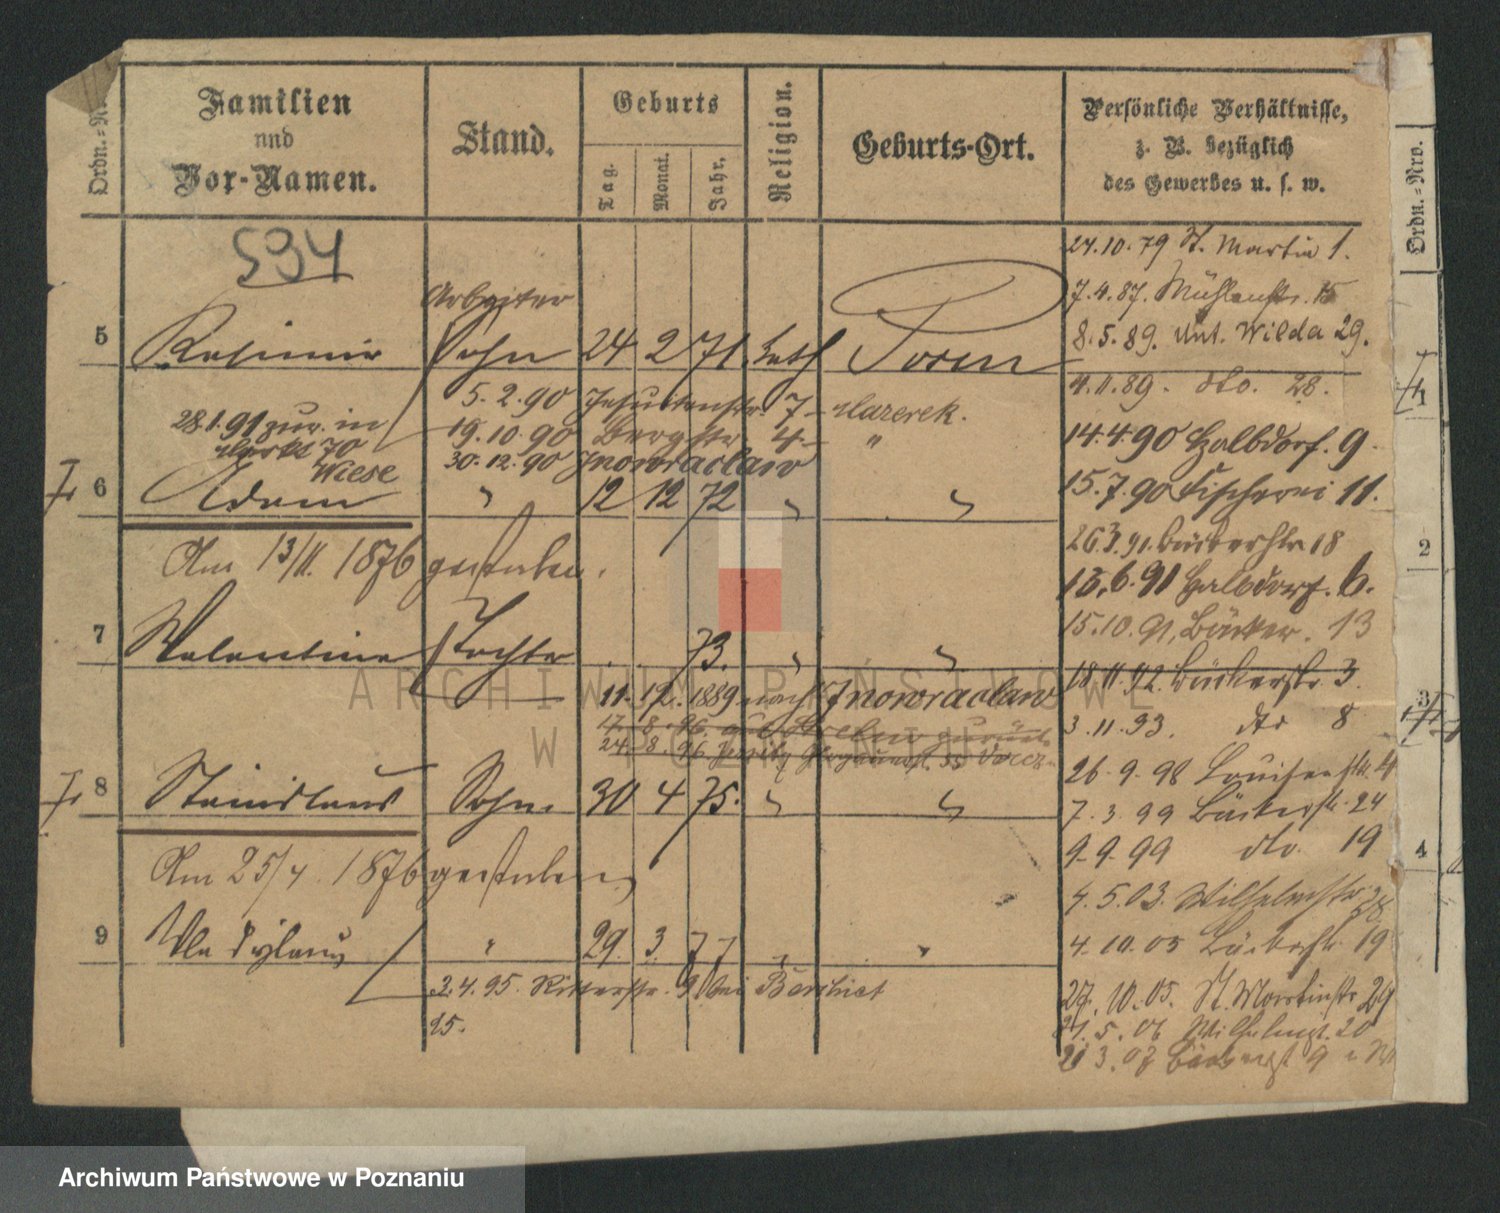 Ordn.-Nr.
Familien
und
Vor-Namen.
Stand.
Geburts
Tag.
Monat.
Jahr.
Religion.
Geburts-Ort.
Persönliche Verhältnisse,
z. B. bezüglich
des Gewerbes u. s. w.
Ordn.-Nro.
594
24.10.79 St. Martin 1.
Arbeiter
7.4.87. Mühlenstr. 15
8.5.89. Unt. Wilda 29.
5 Kasimir Sohn 24 2 71. kath Posen
4.11.89. dto. 28.
5.2.90 Jesuitenstr. 7
28.1.91 zur. in
19.10.90 Bergstr. 4 "
14.4.90 Halbdorf. 9.
Markt 70
Wiese
30.12.90 Inowraclaw
15.7.90 Fischerei 11.
6 Adam " 12 12 72 " "
26.3.91. Bäckerstr 18
Am 13/11. 1876 gestorben.
15.6.91 Halbdorf. 6.
15.10.91, Bäcker. 13
7 Valentine Tochter 73. " "
18.11.92. Bäckerstr. 3.
11.12.1889 nach Inowraclaw
3.11.93. dto 8
17.8.96. zurück
24.8.96
26.9.98 Louisenstr.
8 Stanislaus Sohn 30 4 75. " "
7.3.99 Bäckerstr. 24
9.9.99 dto. 19
Am 25/4. 1876 gestorben
4.5.03. Wilhelmstr.
9 Wladyslaus " 29. 3. 77 " "
4.10.05 Bäckerstr. 19
2.4.95. Ritterstr. 9 bei
27.10.05. St. Martinstr 29
95.
21.5.06 Wilhelmst. 20
3.07
1
2
3
4
ARCHIWUM PAŃSTWOWE
W POZNANIU
Archiwum Państwowe w Poznaniu